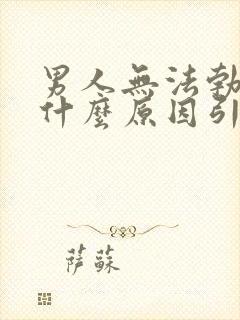 男人無法勃
什麼原因引
薩蘇